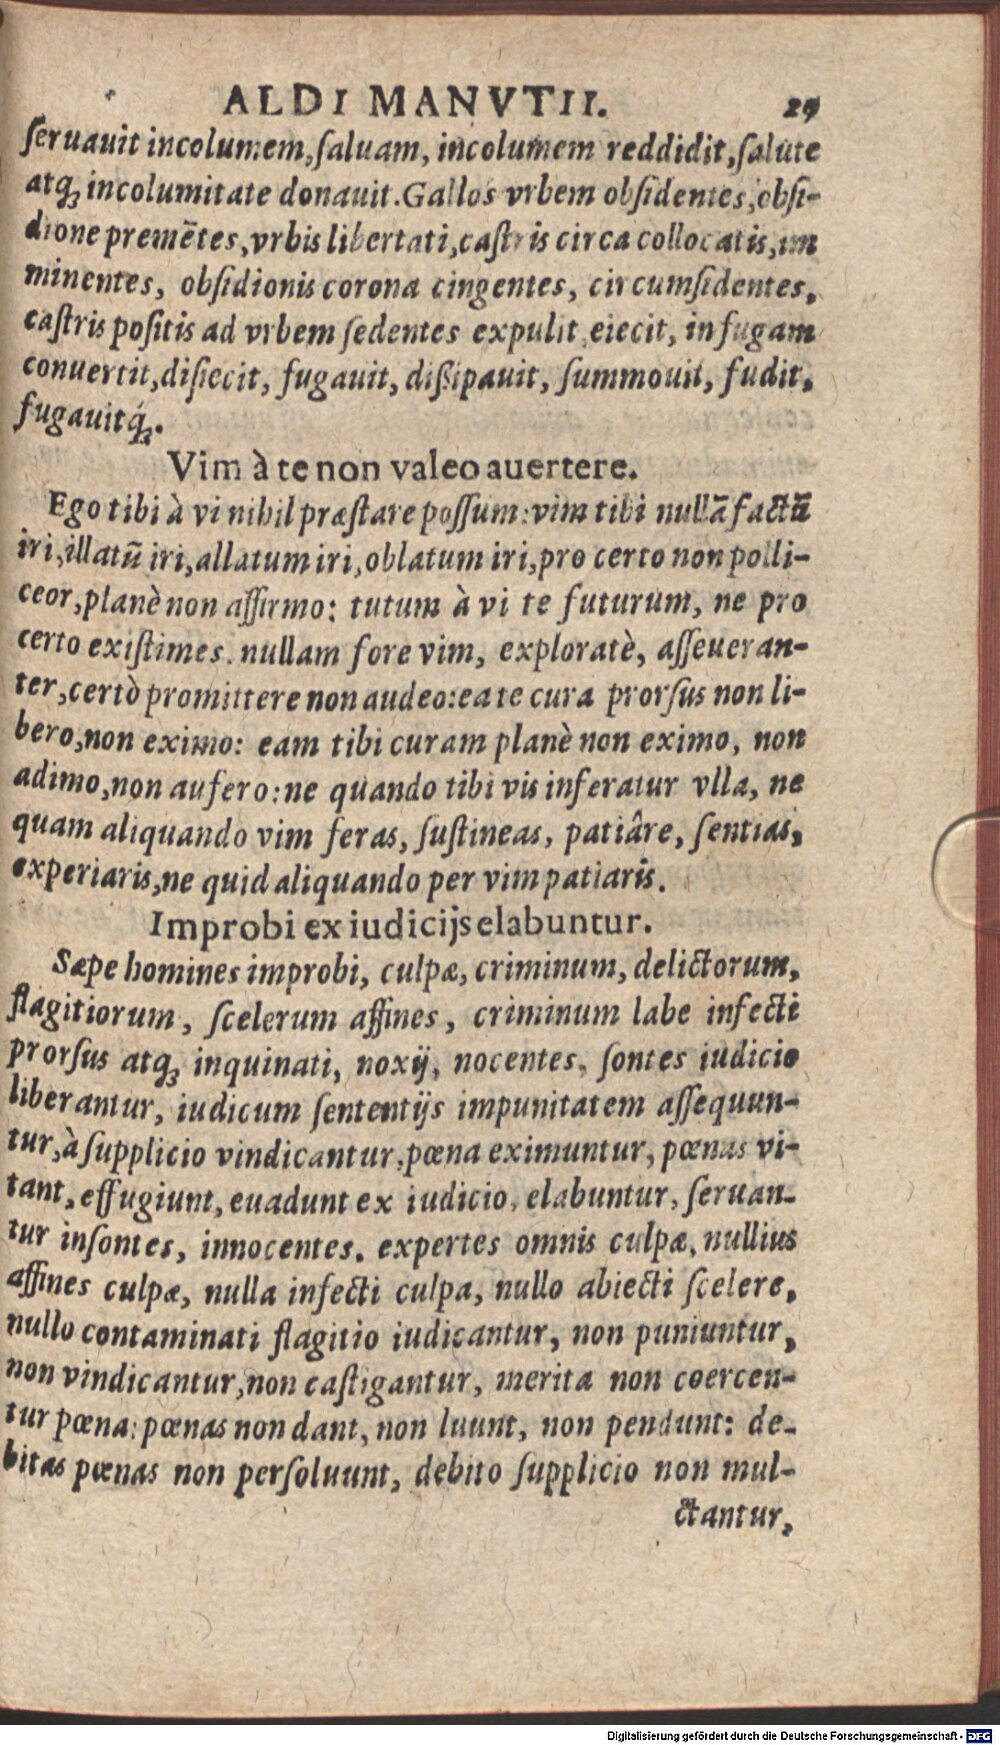 ALDI MANVTII. 29
ſeruauit incolumem, ſaluam, incolumem reddidit, ſalute
atq; incolumitate donauit. Gallos vrbem obſidentes, obſi-
dione premẽtes, vrbis libertati, caſtris circa collocatis, im
minentes, obſidionis corona cingentes, circumſidentes,
caſtris poſitis ad vrbem ſedentes expulit, eiecit, in fugam
conuertit, diſiecit, fugauit, dißipauit, ſummouit, fudit,
fugauitq́;.
Vim à te non valeo auertere.
Ego tibi à vi nihil præſtare poſſum: vim tibi nullã factũ
iri, illatũ iri, allatum iri, oblatum iri, pro certo non polli-
ceor, planè non affirmo: tutum à vi te futurum, ne pro
certo exiſtimes. nullam fore vim, exploratè, aſſeueran-
ter, certò promittere non audeo: ea te cura prorſus non li-
bero, non eximo: eam tibi curam planè non eximo, non
adimo, non aufero: ne quando tibi vis inferatur vlla, ne
quam aliquando vim feras, ſuſtineas, patiâre, ſentias,
experiaris, ne quid aliquando per vim patiaris.
Improbi ex iudicijs elabuntur.
Sæpe homines improbi, culpæ, criminum, delictorum,
flagitiorum, ſcelerum affines, criminum labe infecti
prorſus atq; inquinati, noxij, nocentes, ſontes iudicio
liberantur, iudicum ſententijs impunitatem aſſequun-
tur, à ſupplicio vindicantur, pœna eximuntur, pœnas vi-
tant, effugiunt, euadunt ex iudicio, elabuntur, ſeruan-
tur inſontes, innocentes, expertes omnis culpæ, nullius
affines culpæ, nulla infecti culpa, nullo abiecti ſcelere,
nullo contaminati flagitio iudicantur, non puniuntur,
non vindicantur, non caſtigantur, merita non coercen-
tur pœna: pœnas non dant, non luunt, non pendunt: de-
bitas pœnas non perſoluunt, debito ſupplicio non mul-
ctantur,
Digitalisierung gefördert durch die Deutsche Forschungsgemeinschaft - DFG